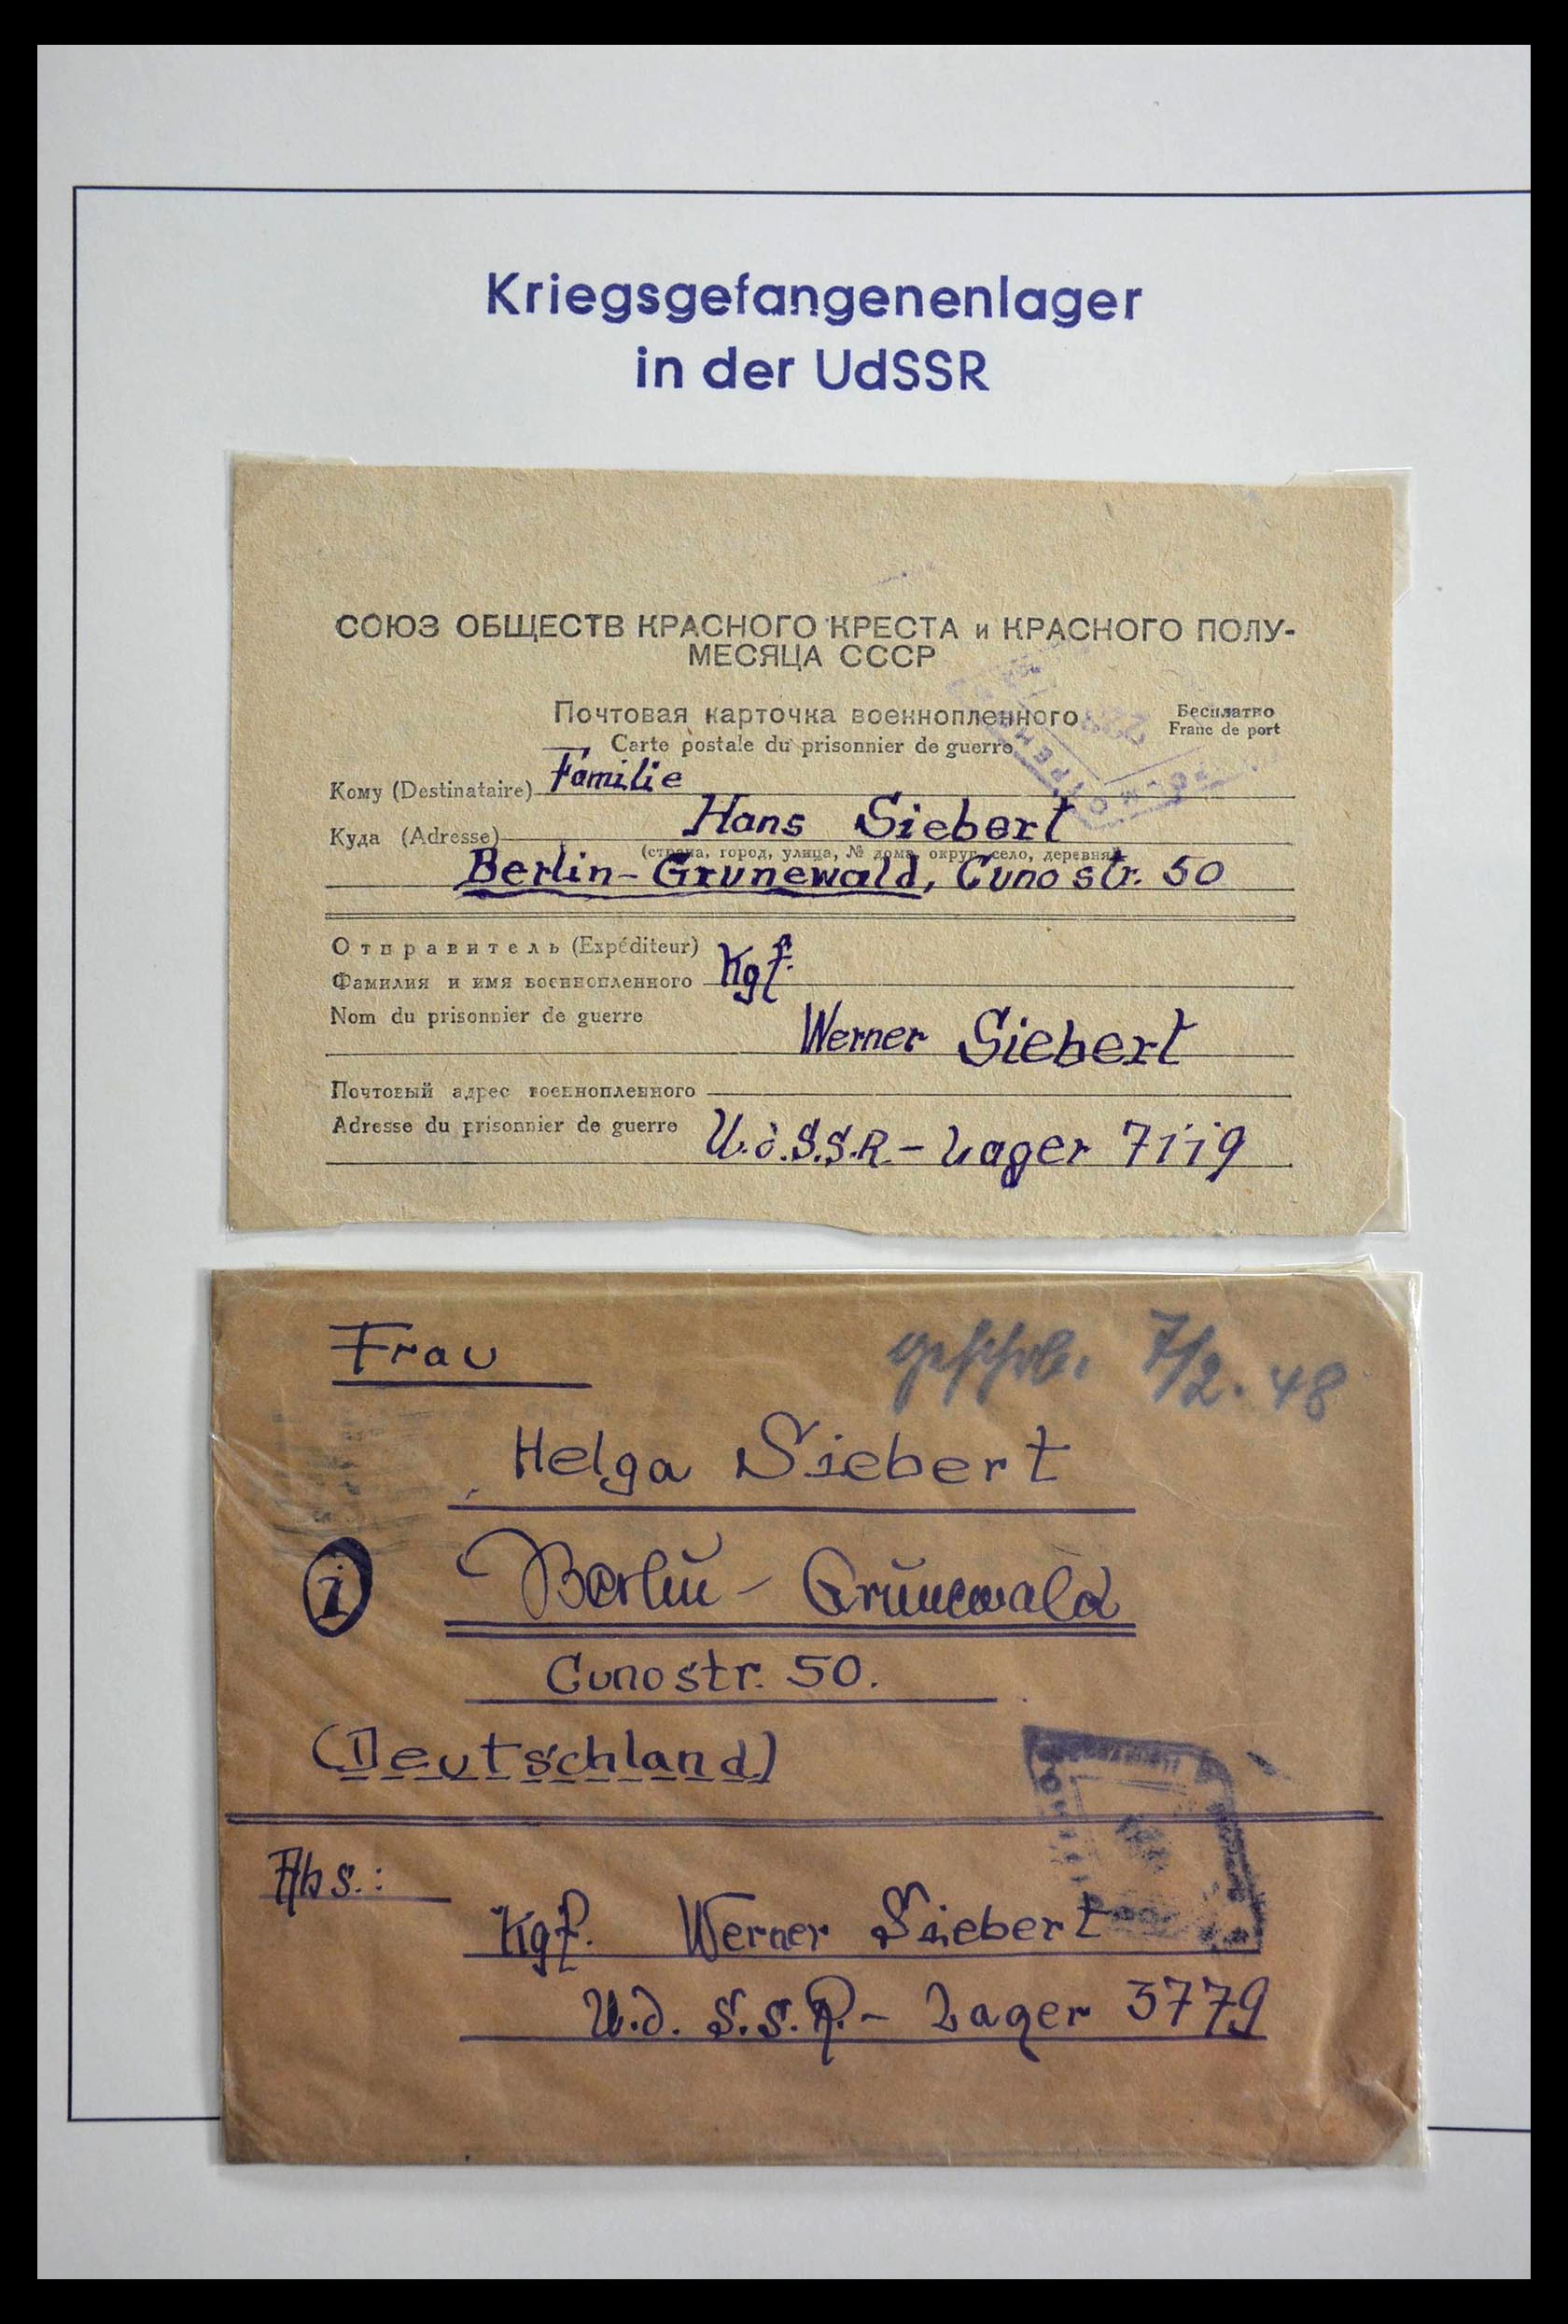 Kriegsgefangenenlager
in der UdSSR
СОЮЗ ОБЩЕСТВ КРАСНОГО КРЕСТА и КРАСНОГО ПОЛУ-
МЕСЯЦА СССР
Почтовая карточка военнопленного
Бесплатно
Carte postale du prisonnier de guerre
Franc de port
Кому (Destinataire) Familie
Куда (Adresse) Hans Siebert
(страна, город, улица, № дома, округ, село, деревня)
Berlin-Grunewald, Cunostr. 50
Отправитель (Expéditeur)
Фамилия и имя военнопленного Kgf.
Nom du prisonnier de guerre
Werner Siebert
Почтовый адрес военнопленного
Adresse du prisonnier de guerre U.d.S.S.R - Lager 7119
Frau
geschrb. 7/2. 48
Helga Siebert
i Berlin - Grunewald
Cunostr. 50.
(Deutschland)
Abs.:
Kgf. Werner Siebert
U.d. S.S.R. - Lager 3779